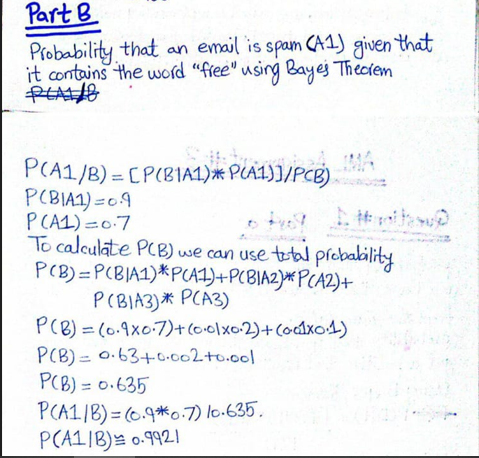 Part B
Probability that an email is spam (A1) given that
it contains the word "free" using Bayes Theorem
P(A1/B
P(A1/B) = [P(B|A1)* P(A1)]/P(B)
P(B|A1)=0.9
P(A1)=0.7
To calculate P(B) we can use total probability
P(B)=P(B|A1)*P(A1)+P(B|A2)*P(A2)+
P(B|A3)* P(A3)
P(B)=(0.9x0.7)+(0.01x0.2)+(0.01x0.1)
P(B)= 0.63+0.002+0.001
P(B)= 0.635
P(A1|B)=(0.9*0.7)/0.635.
P(A1|B)≅ 0.9921